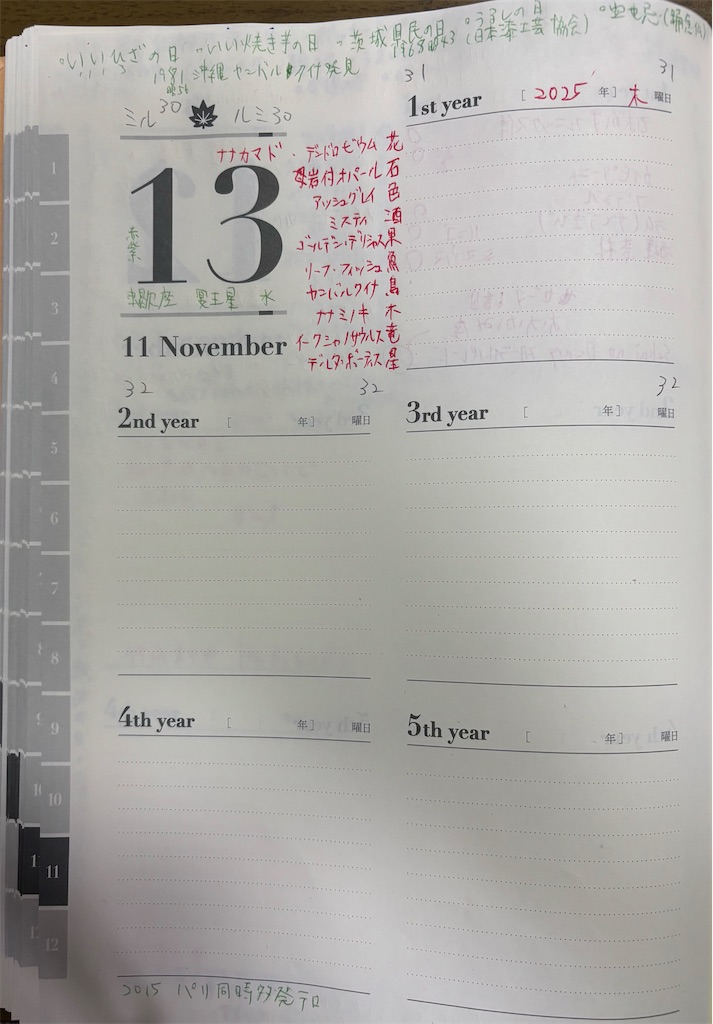 °いいひざの日 °いい焼き芋の日 °茨城県民の日 °うるしの日 °空也忌(踊念仏)
1968 昭43 (日本漆工芸協会)
1981 沖縄 ヤンバルクイナ発見
昭56
31 31
ミル30 ルミ30
1st year [ 2025 年] 木 曜日
ナナカマド・デンドロビウム 花
母岩付オパール 石
アッシュグレイ 色
ミスティ 酒
ゴールデン・デリシャス 果
リーフ・フィッシュ 魚
ヤンバルクイナ 鳥
ナナミノキ 木
イークシャノサウルス 竜
デルタ・ボーティス 星
13
赤紫
蠍座 冥王星 水
11 November
32 32 32
2nd year [ 年] 曜日
3rd year [ 年] 曜日
4th year [ 年] 曜日
5th year [ 年] 曜日
2015 パリ同時多発テロ
1
2
3
4
5
6
7
8
9
10
11
12